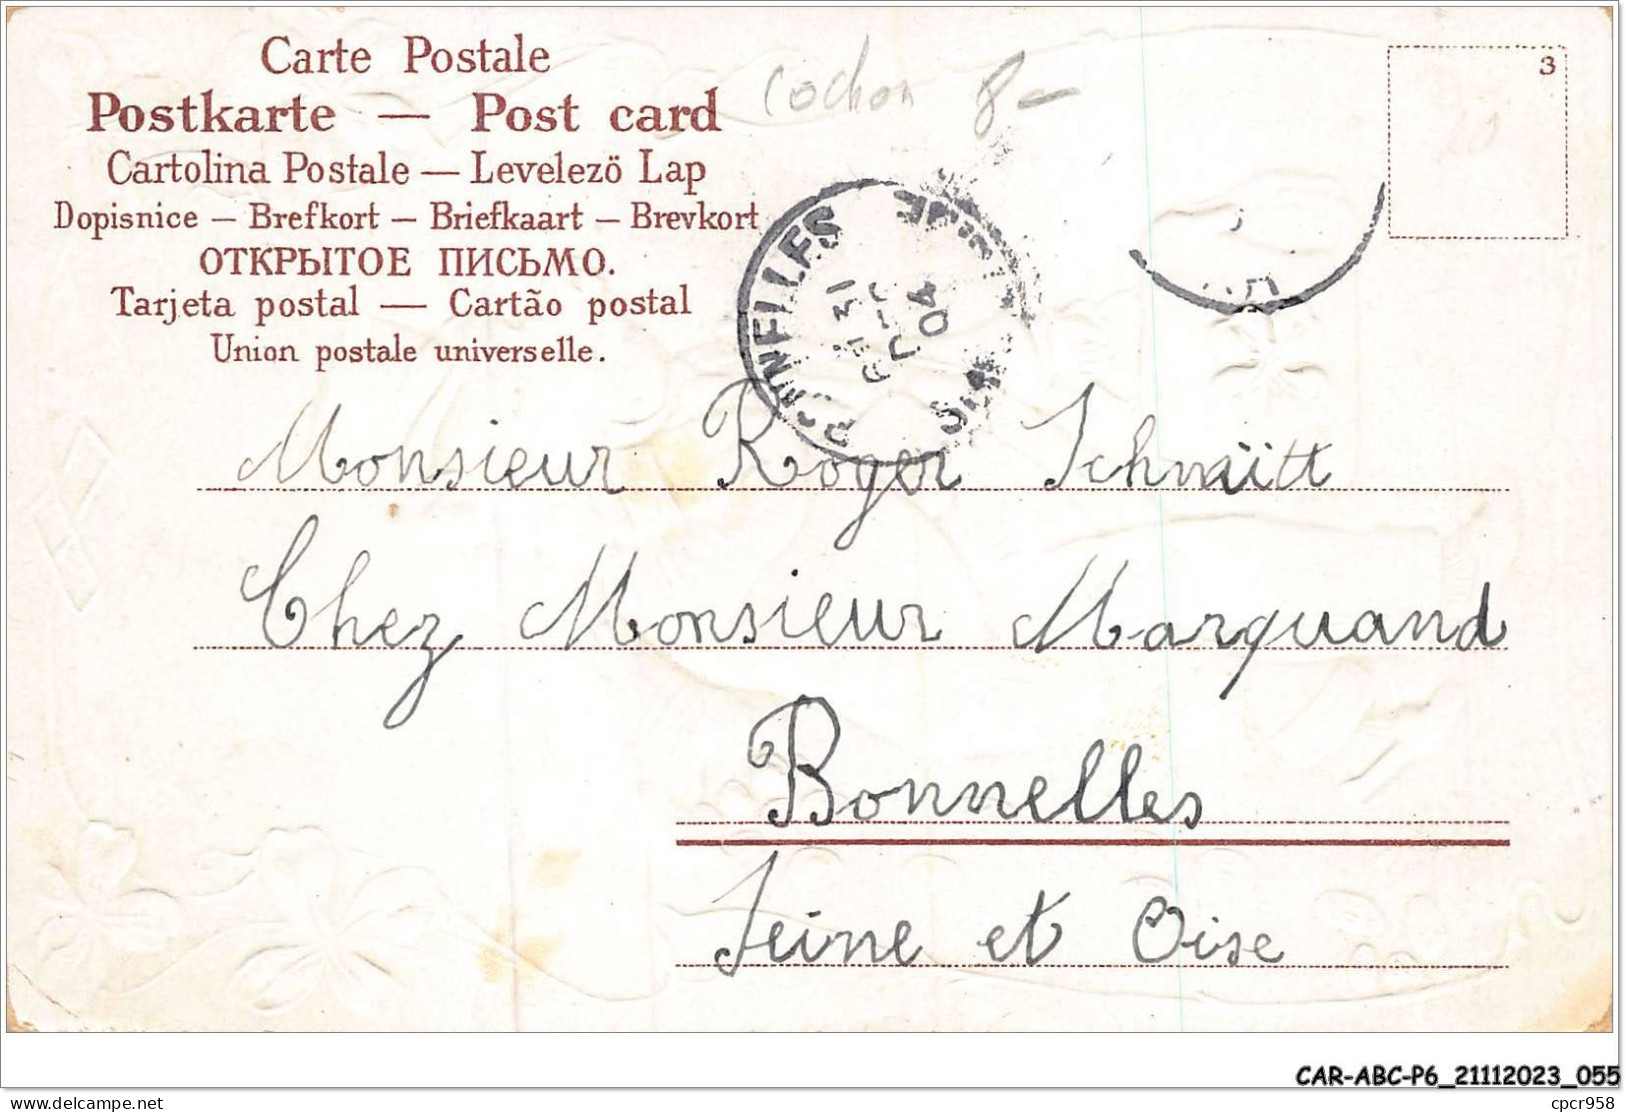 Carte Postale
cochon 8-
3
Postkarte — Post card
Cartolina Postale — Levelező Lap
Dopisnice — Brefkort — Briefkaart — Brevkort
ОТКРЫТОЕ ПИСЬМО.
Tarjeta postal — Cartão postal
Union postale universelle.
BONNELLES
04
Monsieur Roger Schmitt
Chez Monsieur Marquand
Bonnelles
Seine et Oise
CAR-ABC-P6_21112023_055
delcampe.net
cpcr958